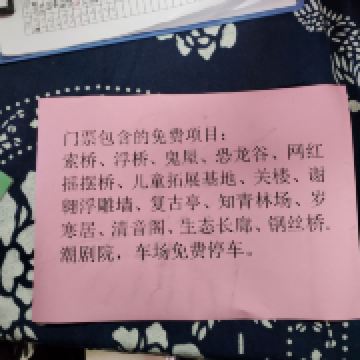 门票包含的免费项目：
索桥、浮桥、鬼屋、恐龙谷、网红
摇摆桥、儿童拓展基地、关楼、谢
翱浮雕墙、复古亭、知青林场、岁
寒居、清音阁、生态长廊、钢丝桥、
潮剧院，车场免费停车。